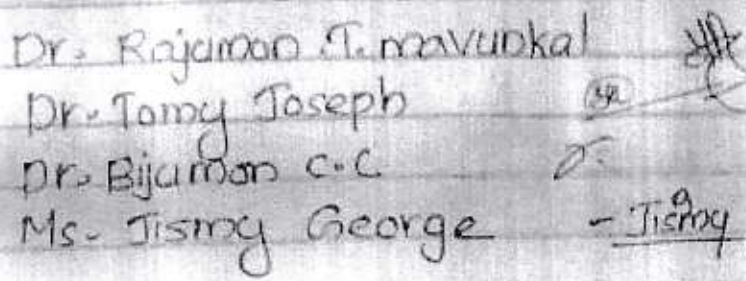 Dr. Rajumon T. mavunkal
Dr. Tomy Joseph
Dr. Bijumon C.C
Ms. Jismy George - Jismy